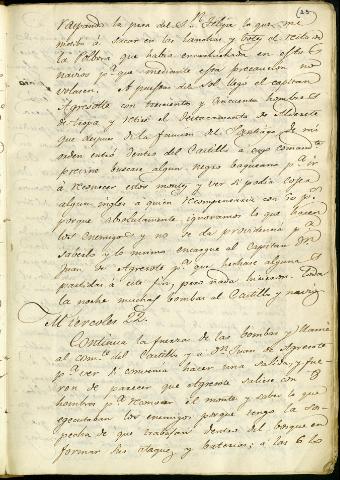 25
la pieza del Sn. Felipe lo que me
a sacar en las lanchas y botes el resto de
la Polbora que habia en estos
navios pa. que mediante esta precaucion no
volasen. A puestas del Sol llegó el capitan
Agresote con trescientos y cincuenta hombres
de tropa y retiró el destacamento de Alderete
que despues de la funcion del Santiago de mi
orden entró dentro del Castillo a cuyo comandte
previno buscase algun negro baqueano pa. ir
à reconocer estos montes y ver si podia coger
algun ingles a quien recompensaria con 50 ps.
porque absolutamente ignoramos lo que hacen
los enemigos y no se da providencia pa.
saberlo y lo mismo encargue al Capitan Dn.
Juan de Agresote pa. que hechase algunas
partidas a este fin, pero nada hicieron. Toda
la noche muchas bombas al Castillo y navios
Miercoles 22.
Continua la fuerza de las bombas y llamé
al comte. del Castillo y a Dn. Juan de Agresote
pa. ver si convenia hacer una salida, y fue-
ron de parecer que Agresote saliese con
hombres pa. reconocer el monte y saber lo que
egecutaban los enemigos porque tengo la sos-
pecha de que trabajan dentro del bosque en
formar sus ataques y baterias; a las 6 lo